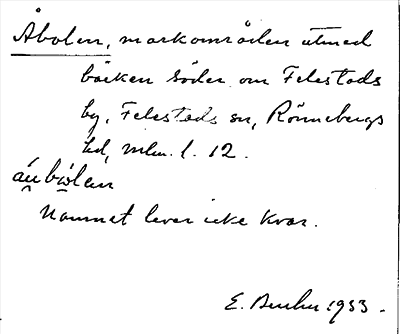 Åbolen, markområden utmed
bäcken söder om Felestads
by, Felestads sn, Rönnebergs
hd, mlm. l. 12.
áu̯bólen
Namnet lever icke kvar.
E. 1933.